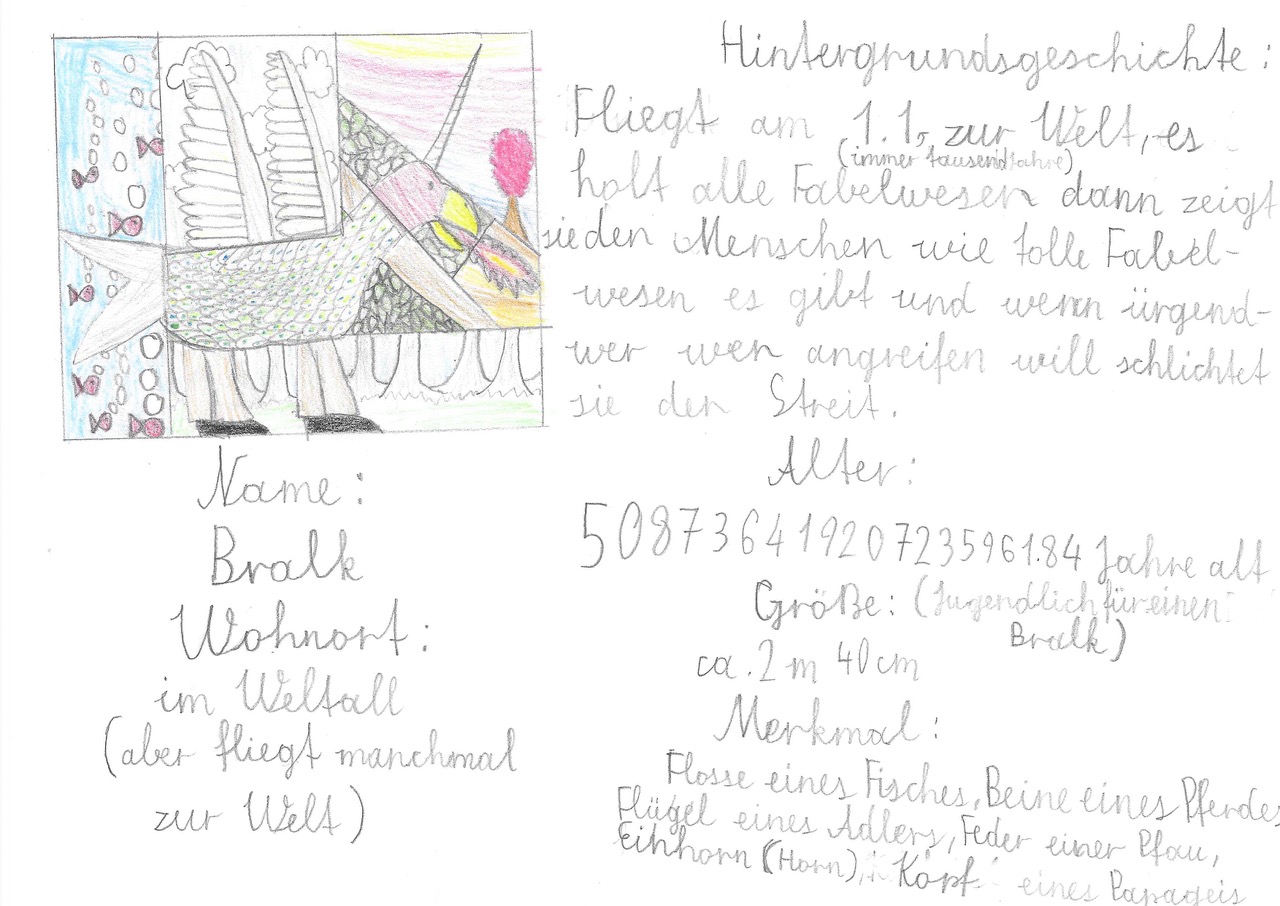 Name:
Bralk
Wohnort:
im Weltall
(aber fliegt manchmal
zur Welt)
Hintergrundsgeschichte:
Fliegt am 1.1, zur Welt, es
(immer tausend Jahre)
holt alle Fabelwesen dann zeigt
sie den Menschen wie tolle Fabel-
wesen es gibt und wenn ürgend-
wer wen angreifen will schlichtet
sie den Streit.
Alter:
508736419207235961.84 Jahre alt
(Jugendlich für einen
Bralk)
Größe:
ca. 2 m 40 cm
Merkmal:
Flosse eines Fisches, Beine eines Pferdes
Flügel eines Adlers, Feder einer Pfau,
Einhorn (Horn), Kopf eines Papageis